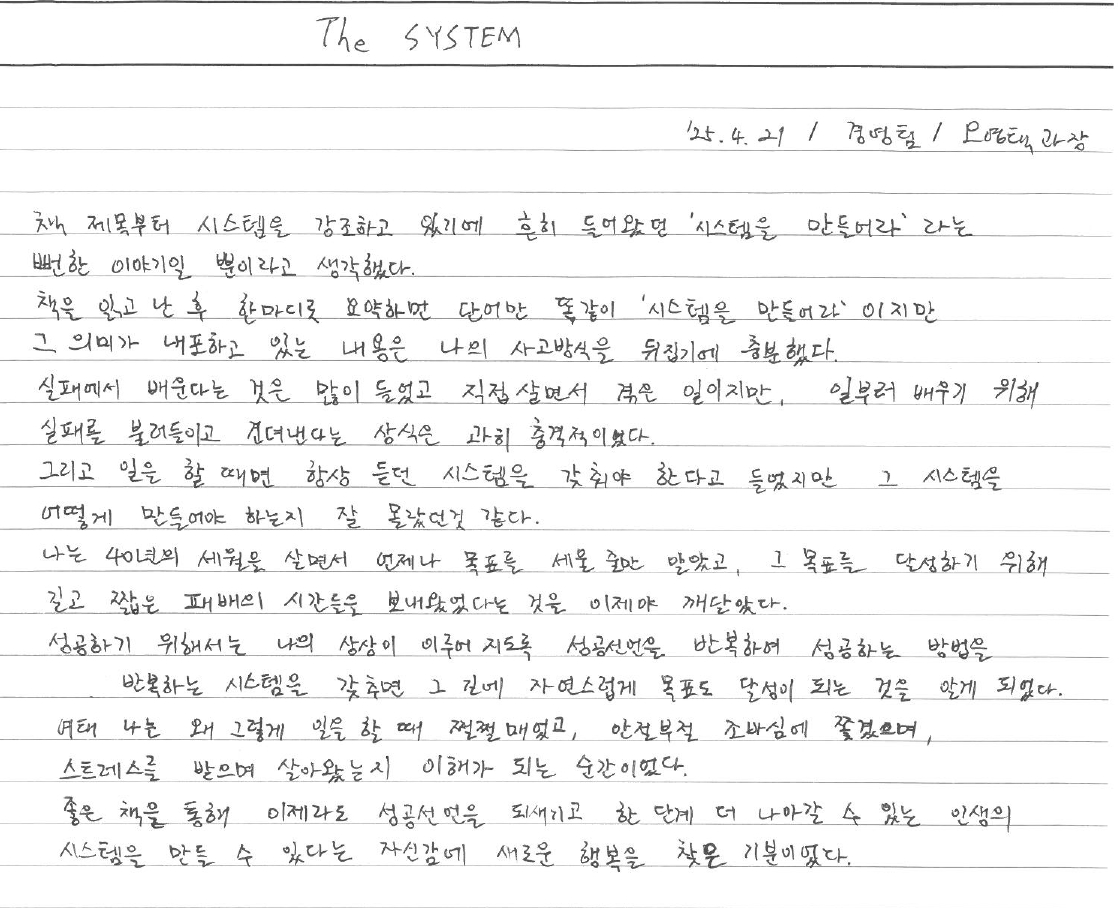 The SYSTEM
'25.4.21 / 경영팀 / 오영택 과장
책 제목부터 시스템을 강조하고 있기에 흔히 들어왔던 '시스템을 만들어라' 라는
뻔한 이야기일 뿐이라고 생각했다.
책을 읽고 난 후 한마디로 요약하면 단어만 똑같이 '시스템을 만들어라' 이지만
그 의미가 내포하고 있는 내용은 나의 사고방식을 뒤집기에 충분했다.
실패에서 배운다는 것은 많이 들었고 직접 살면서 겪은 일이지만, 일부러 배우기 위해
실패를 불러들이고 견뎌낸다는 상식은 과히 충격적이었다.
그리고 일을 할 때면 항상 듣던 시스템을 갖춰야 한다고 들었지만 그 시스템을
어떻게 만들어야 하는지 잘 몰랐던것 같다.
나는 40년의 세월을 살면서 언제나 목표를 세울 줄만 알았고, 그 목표를 달성하기 위해
길고 짧은 패배의 시간들을 보내왔었다는 것을 이제야 깨달았다.
성공하기 위해서는 나의 상상이 이루어 지도록 성공선언을 반복하여 성공하는 방법을
반복하는 시스템을 갖추면 그 길에 자연스럽게 목표도 달성이 되는 것을 알게 되었다.
여태 나는 왜 그렇게 일을 할 때 쩔쩔매었고, 안절부절 조바심에 쫓겼으며,
스트레스를 받으며 살아왔는지 이해가 되는 순간이었다.
좋은 책을 통해 이제라도 성공선언을 되새기고 한 단계 더 나아갈 수 있는 인생의
시스템을 만들 수 있다는 자신감에 새로운 행복을 찾은 기분이었다.